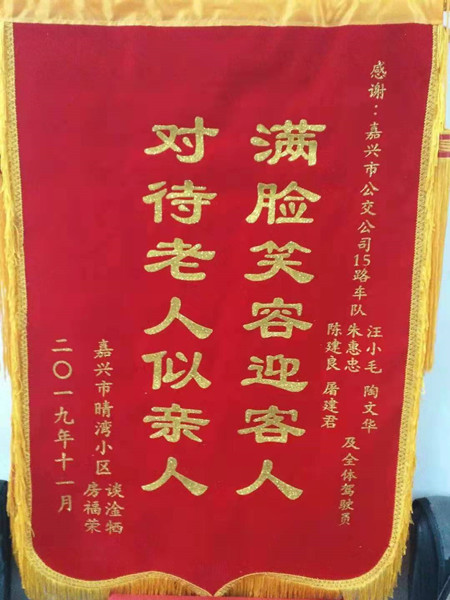 感谢：嘉兴市公交公司15路车队
汪小毛 陶文华
朱惠忠
陈建良 屠建君
及全体驾驶员
满脸笑容迎客人
对待老人似亲人
嘉兴市晴湾小区
谈淦牺
房福荣
二〇一九年十一月